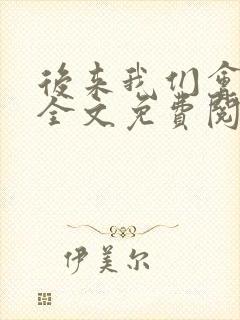 後来我们会
全文免费阅
伊美尔